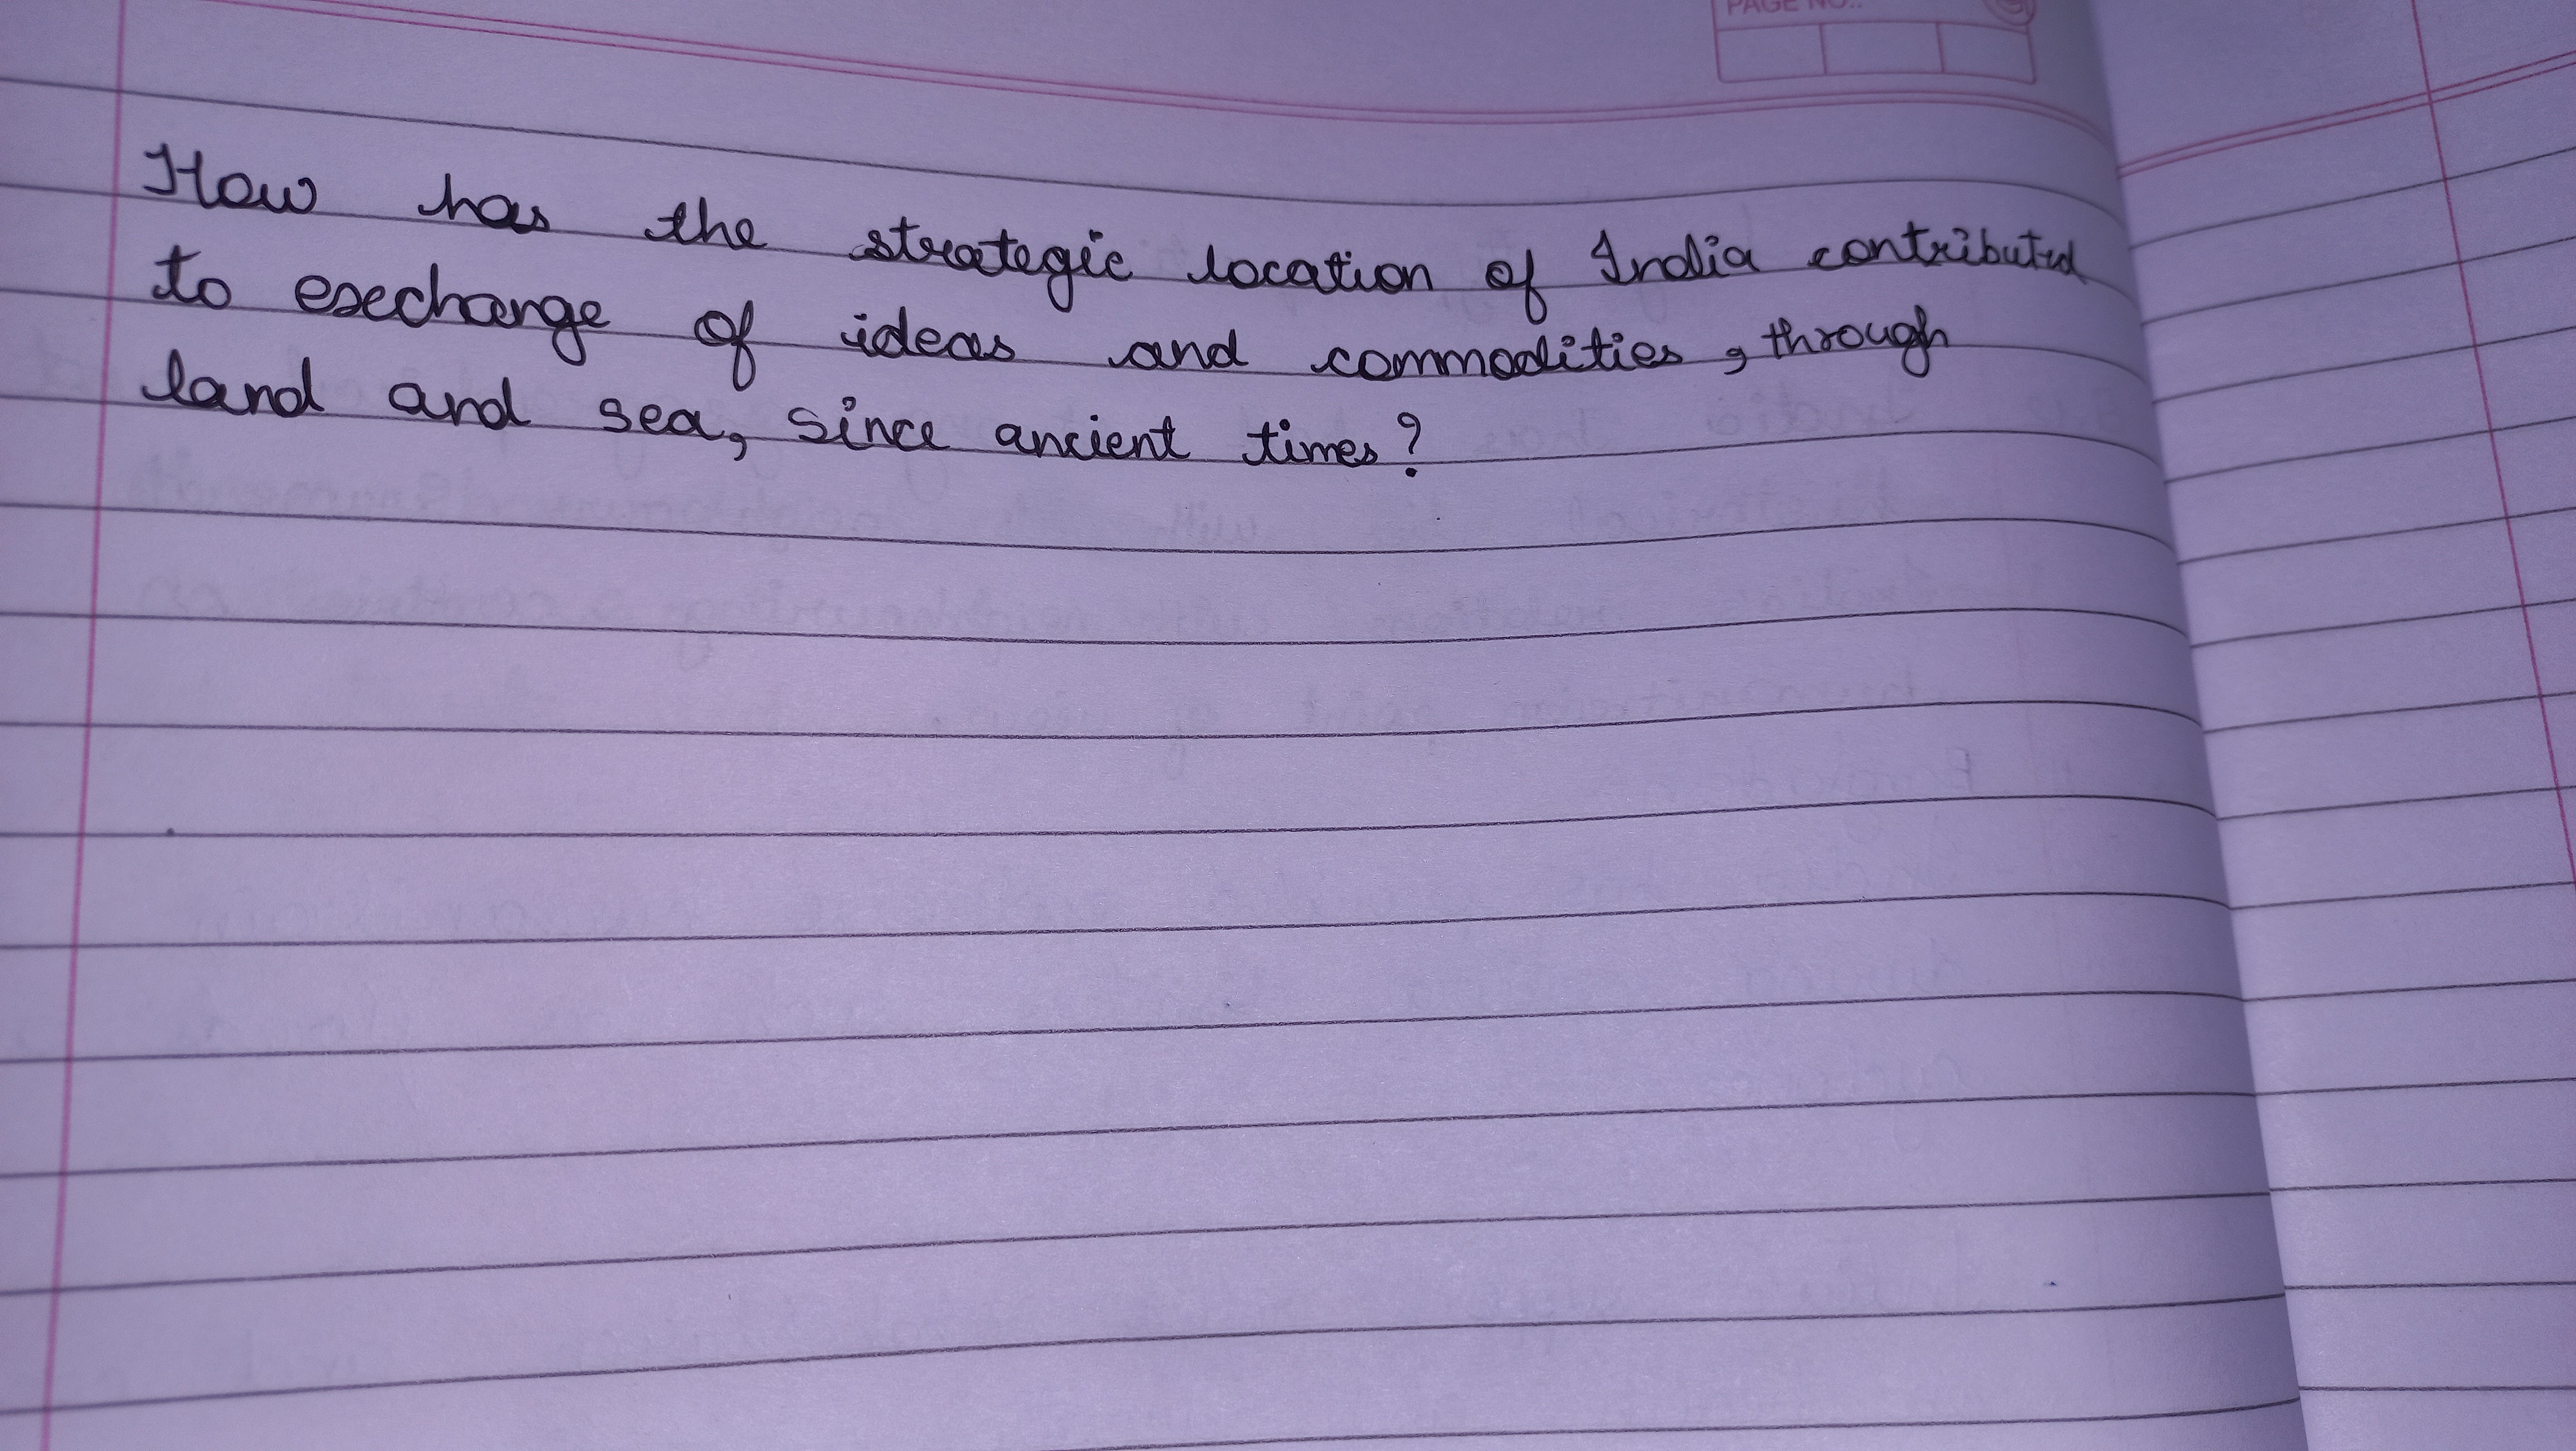 PAGE NO.:
How has the strategic location of India contributed
to exechange of ideas and commodities, through
land and sea, since ancient times?